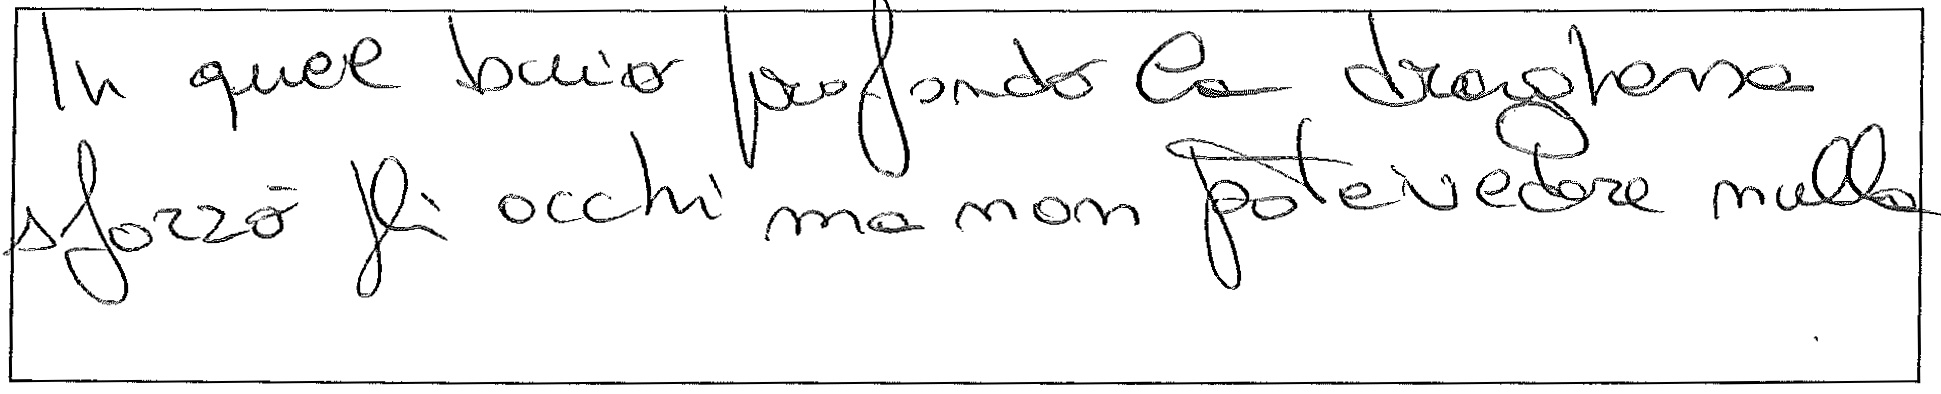 In quel buio profondo la draghessa
sforzò gli occhi ma non potevedere nulla